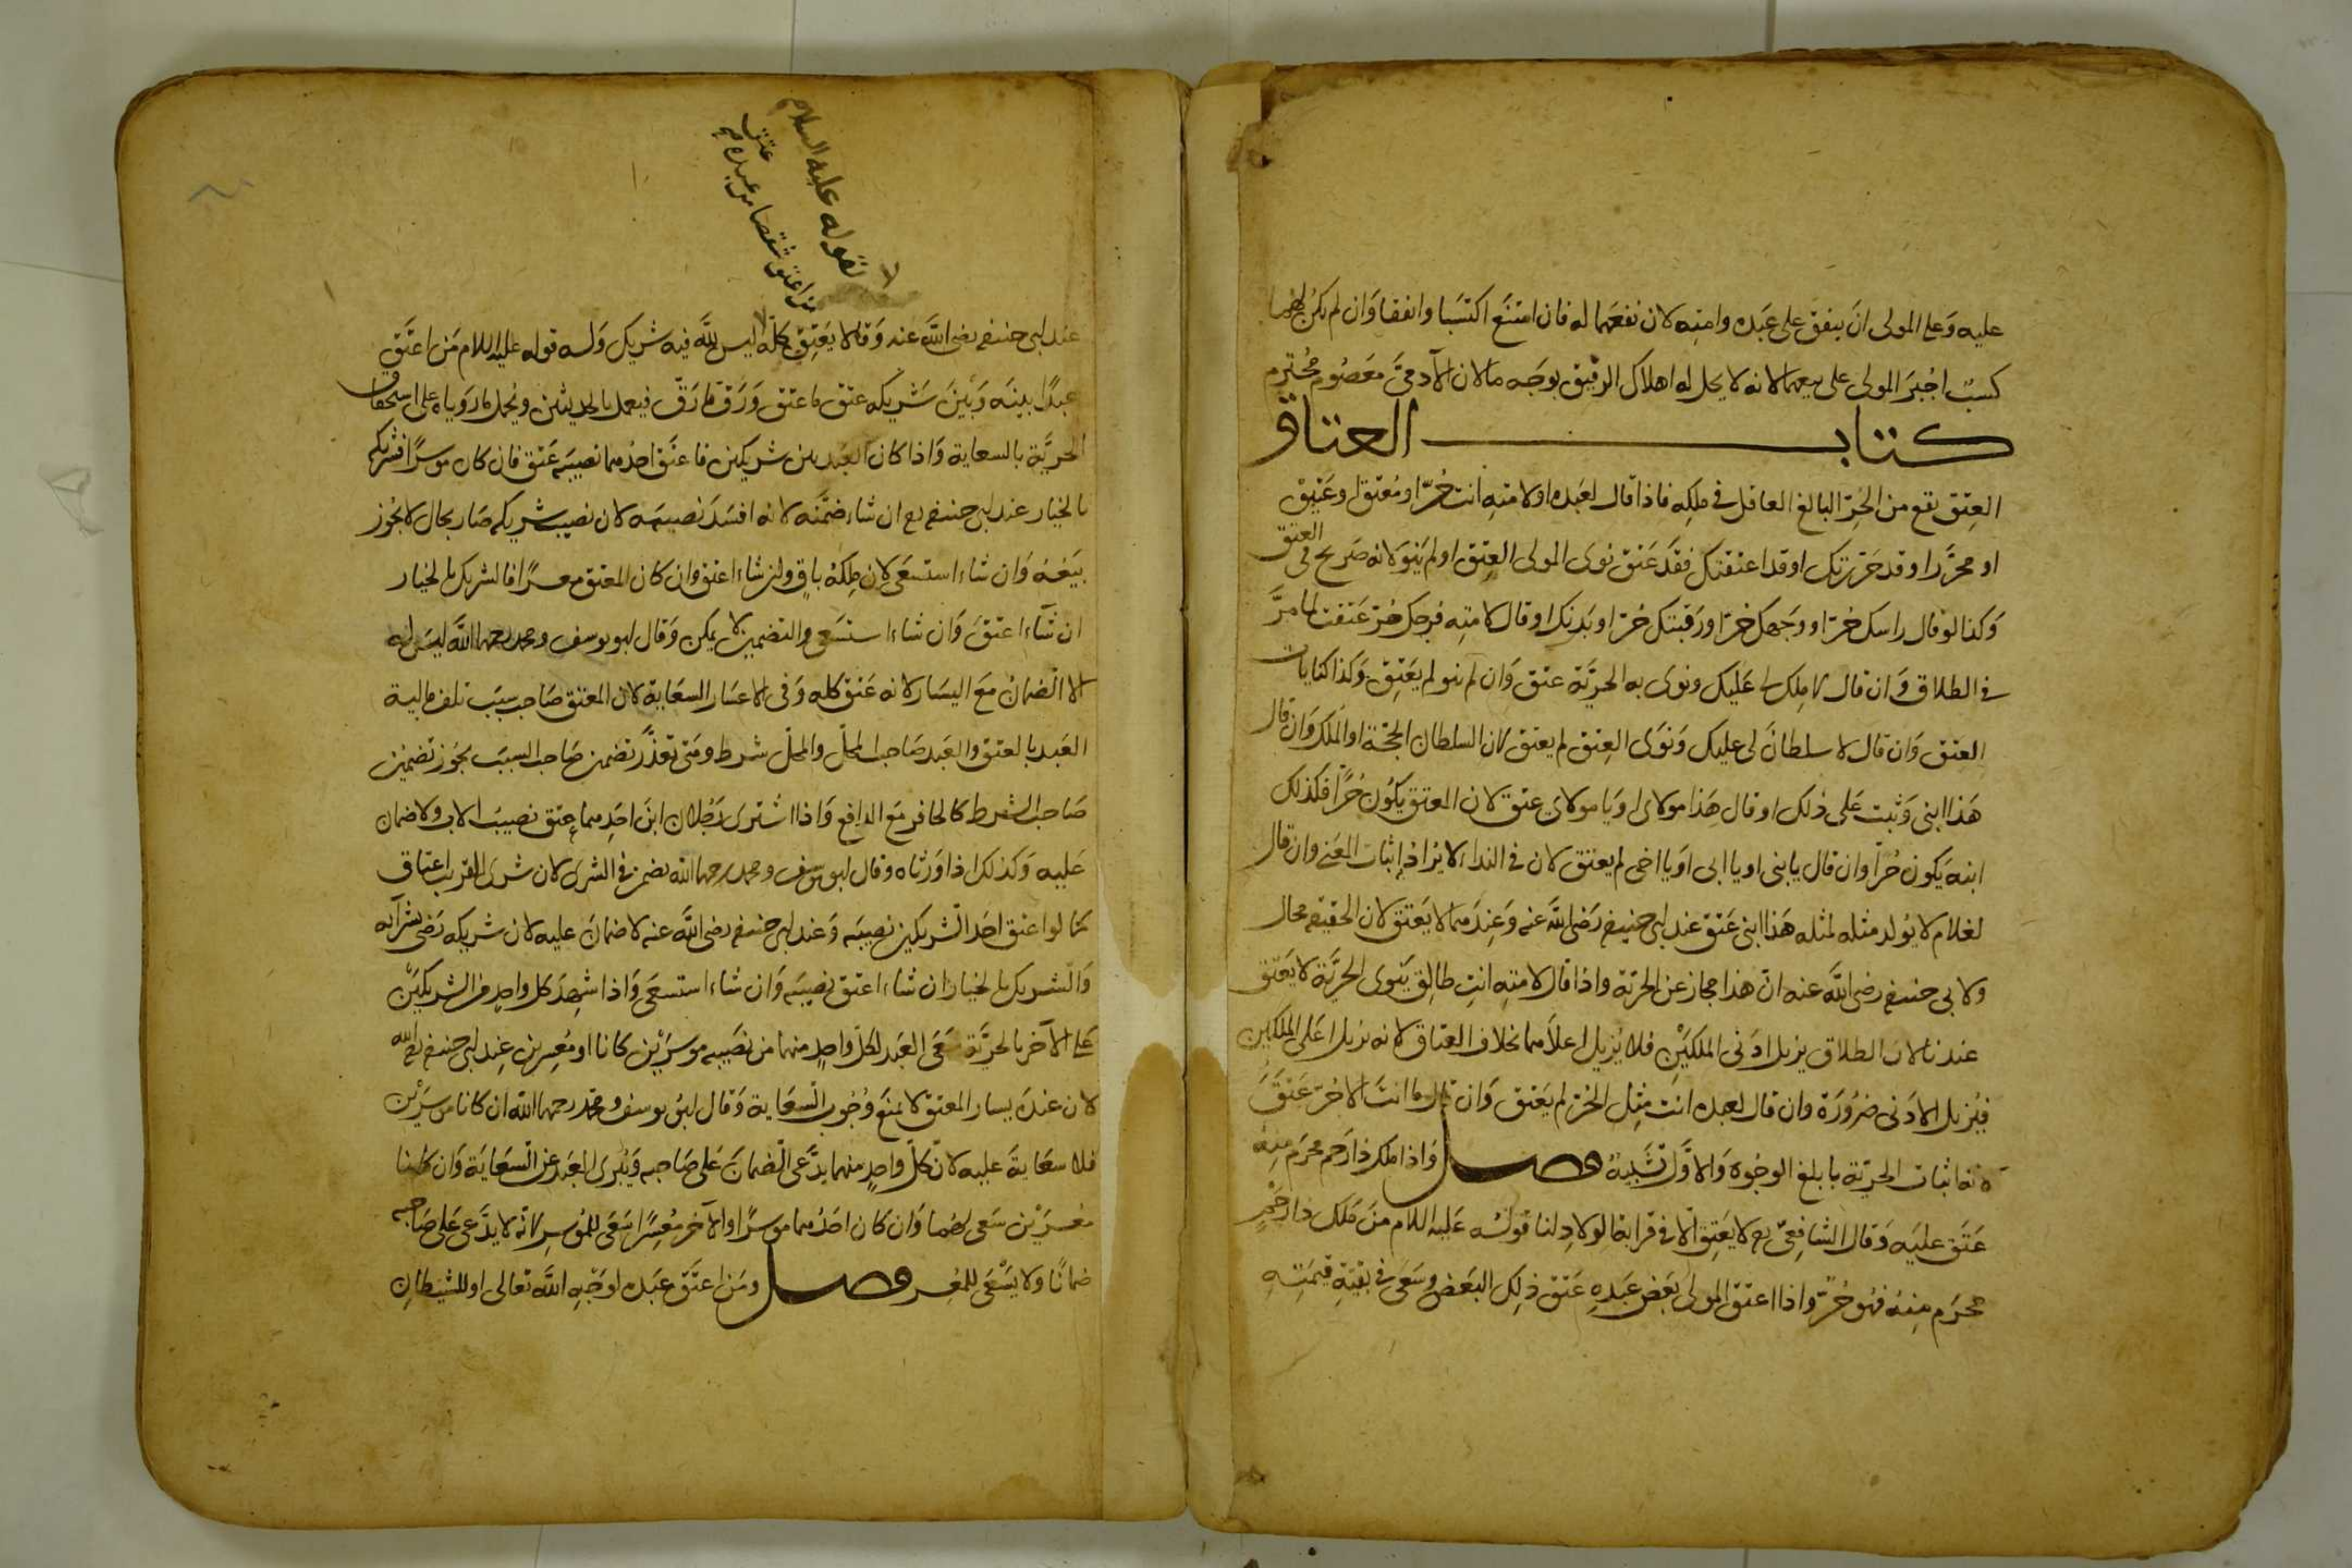 عليه وعلى المولى ان ينفق على عبده وامته لان نفعهما له فان امتنع اكتسبا وانفقا وان لم يكن لهما
كسب اجبر المولى على بيعهما لانه لا يحل له اهلاك الرقيق بوجه ما لان الآدمي معصوم محترم
كتاب العتاق
العتق يقع من الحر البالغ العاقل في ملكه فاذا قال لعبده او لامته انت حر او معتق او عتيق
او محرر او قد حررتك او قد اعتقتك فقد عتق نوى المولى العتق او لم ينو لانه صريح في العتق
وكذا لو قال راسك حر او وجهك حر او رقبتك حر او بدنك او قال لامته فرجك حر عتقت لما مر
في الطلاق وان قال لا ملك لي عليك ونوى به الحرية عتق وان لم ينو لم يعتق وكذا كنايات
العتق وان قال لا سلطان لي عليك ونوى العتق لم يعتق لان السلطان الحجة او الملك وان قال
هذا ابني وثبت على ذلك او قال هذا مولاي او يا مولاي عتق لان المعتق يكون حرا فكذلك
ابنه يكون حرا وان قال يا بني او يا ابي او يا اخي لم يعتق لان في النداء لا يراد اثبات المعنى وان قال
لغلام لا يولد مثله لمثله هذا ابني عتق عند ابي حنيفة رضي الله عنه وعندهما لا يعتق لان الحقيقة محال
ولابي حنيفة رضي الله عنه ان هذا مجاز عن الحرية واذا قال لامته انت طالق ينوى الحرية لا يعتق
عندنا لان الطلاق يزيل ادنى الملكين فلا يزيل اعلاهما بخلاف العتاق لانه يزيل اعلى الملكين
فيزيل الادنى ضرورة وان قال لعبده انت مثل الحر لم يعتق وان قال ما انت الا حر عتق
لانه اثبات الحرية بابلغ الوجوه والاول تشبيه فصل واذا ملك ذا رحم محرم منه
عتق عليه وقال الشافعي رح لا يعتق الا في قرابة الولاد لنا قوله عليه السلام من ملك ذا رحم
محرم منه فهو حر واذا اعتق المولى بعض عبده عتق ذلك البعض وسعى في بقية قيمته
لا لقوله عليه السلام
من اعتق شقصا من عبده
عتق
عند ابي حنيفة رضي الله عنه وقالا يعتق كله ليس لله فيه شريك وله قوله عليه السلام من اعتق
عبدا بينه وبين شريكه عتق ما عتق ورق ما رق فيعمل بالحديثين ويحمل ما روياه على استحقاق
الحرية بالسعاية واذا كان العبد بين شريكين فاعتق احدهما نصيبه عتق فان كان موسرا فشريكه
بالخيار عند ابي حنيفة رح ان شاء ضمنه لانه افسد نصيبه لان نصيب شريكه صار بحال لا يجوز
بيعه وان شاء استسعى لان ملكه باق وان شاء اعتق وان كان المعتق معسرا فالشريك بالخيار
ان شاء اعتق وان شاء استسعى والتضمين لا يمكن وقال ابو يوسف ومحمد رحمهما الله ليس له
الا الضمان مع اليسار لانه عتق كله وفي الاعسار السعاية لان المعتق صاحب سبب تلف مالية
العبد بالعتق والعبد صاحب المحل والمحل شرط ومتى تعذر تضمين صاحب السبب يجوز تضمين
صاحب الشرط كالحافر مع الدافع واذا اشترى رجلان ابن احدهما عتق نصيب الاب ولا ضمان
عليه وكذلك اذا ورثاه وقال ابو يوسف ومحمد رحمهما الله يضمن في الشرى لان شرى القريب اعتاق
كما لو اعتق احد الشريكين نصيبه وعند ابي حنيفة رضي الله عنه لا ضمان عليه لان شريكه رضي بشرائه
والشريك بالخيار ان شاء اعتق نصيبه وان شاء استسعى واذا شهد كل واحد من الشريكين
على الآخر بالحرية سعى العبد لكل واحد منهما من نصيبه موسرين كانا او معسرين عند ابي حنيفة رحمه الله
لان عنده يسار المعتق لا يمنع وجوب السعاية وقال ابو يوسف ومحمد رحمهما الله ان كانا موسرين
فلا سعاية عليه لان كل واحد منهما يدعي الضمان على صاحبه ويبرى العبد عن السعاية وان كانا
معسرين سعى لهما وان كان احدهما موسرا والآخر معسرا سعى للموسر لانه لا يدعي على صاحبه
ضمانا ولا يسعى للمعسر فصل ومن اعتق عبده لوجه الله تعالى او للشيطان